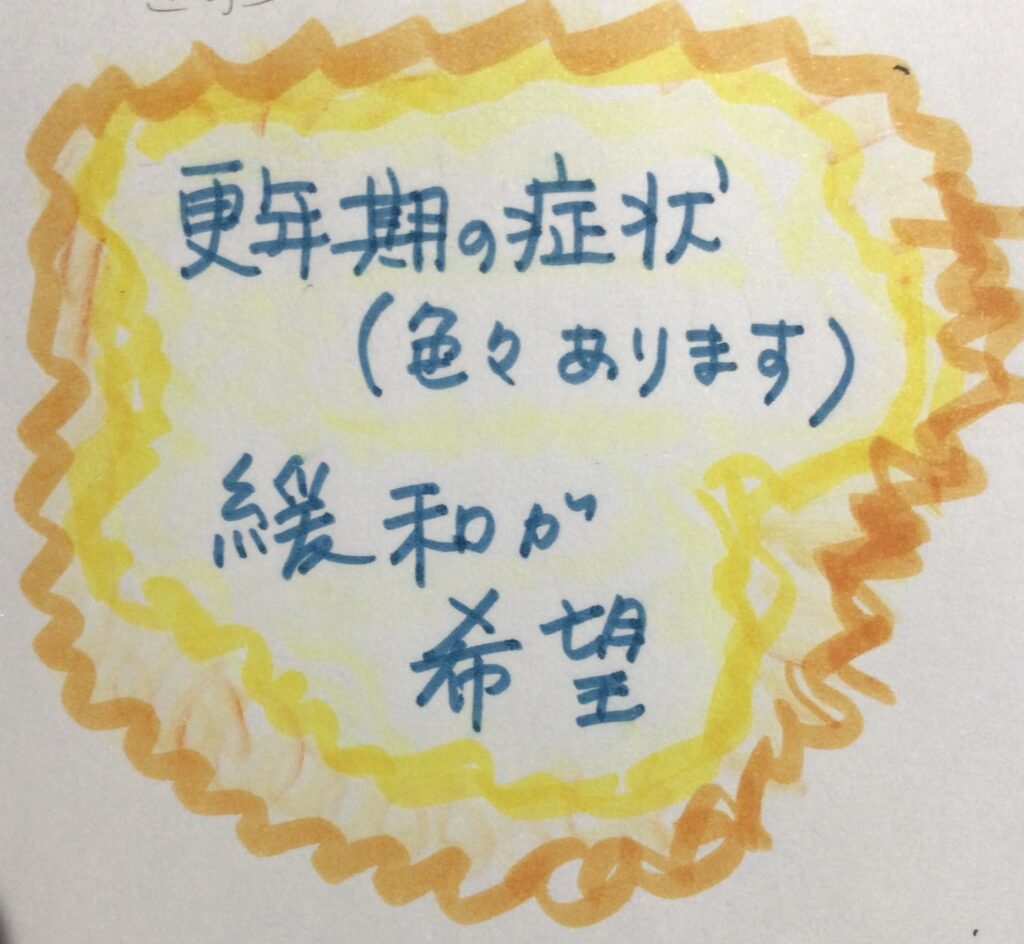 更年期の症状
(色々あります)
緩和が
希望